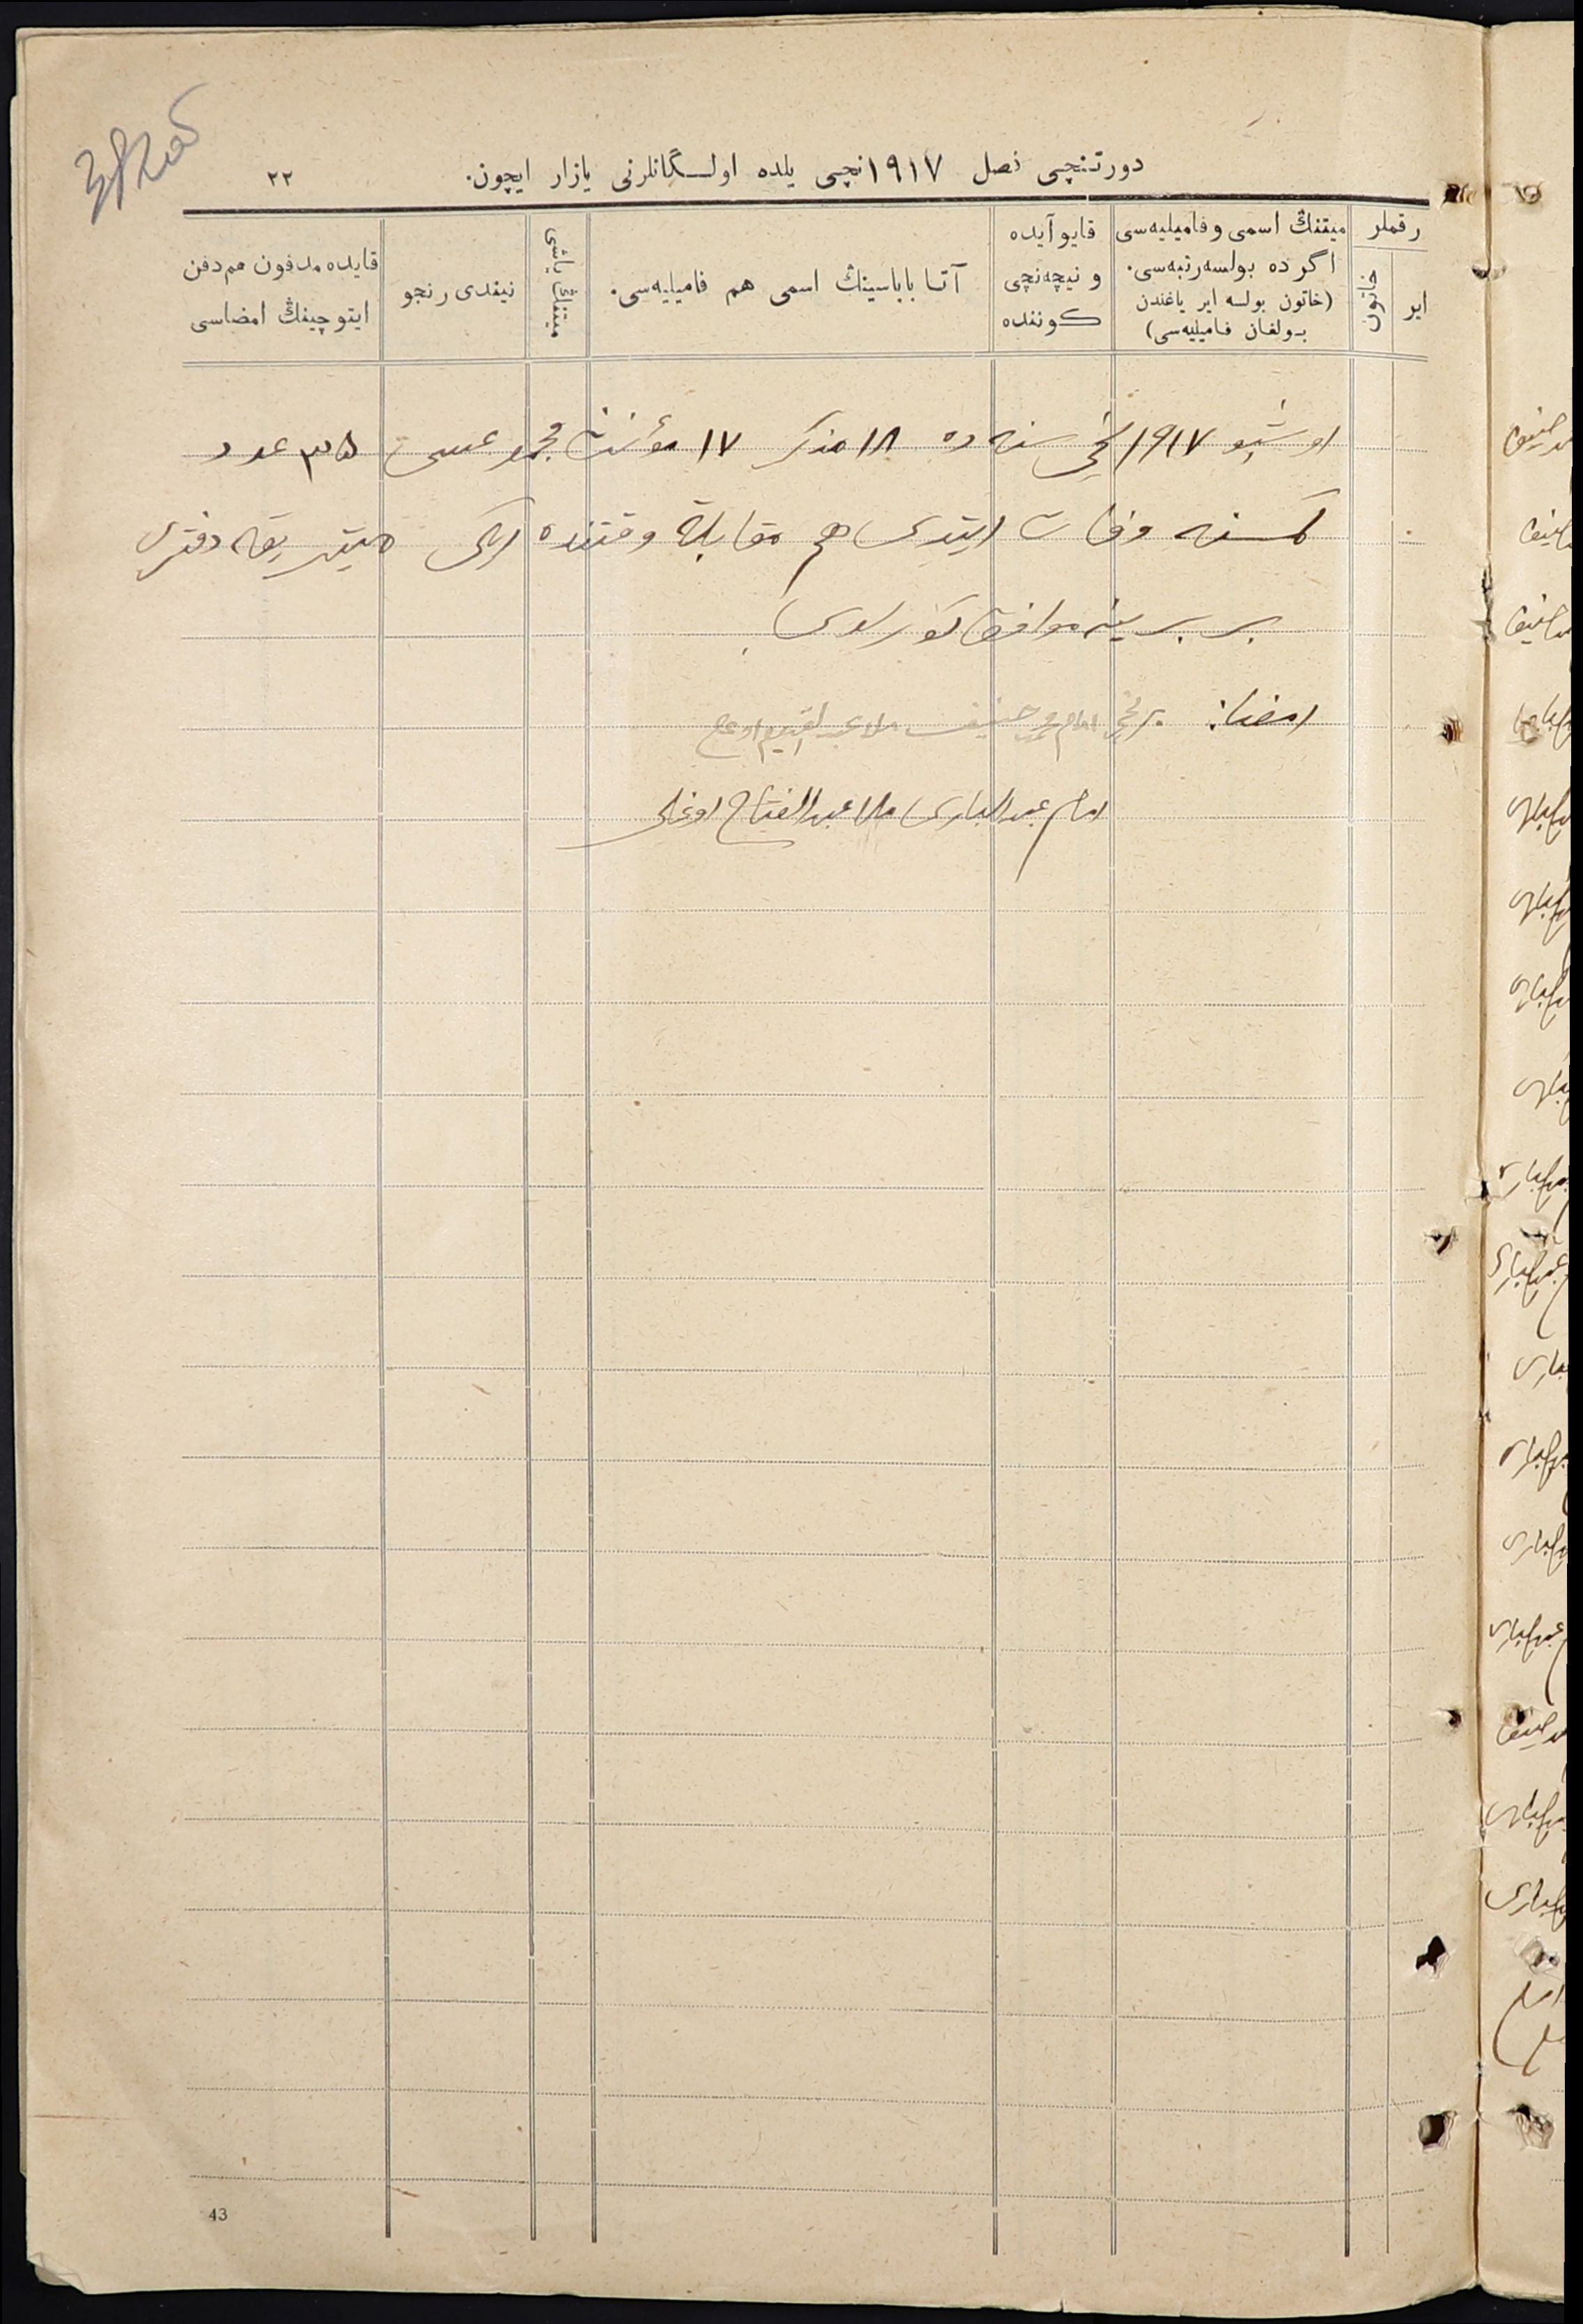 دورتنچی فصل ۱۹۱۷نچی یلده اولـگانلرنی یازار ایچون.
۲۲
رقملر
ایر
خاتون
میتنڭ اسمی و فامیلیه‌سی
اگر ده بولسه رتبه‌سی.
(خاتون بولسه ایر یاغندن
بـولغان فامیلیه‌سی)
قایو آیده
و نیچه‌نچی
کوننده
آتا باباسینڭ اسمی هم فامیلیه‌سی.
میتنڭ یاشی
نیندی رنجو
قایده مدفون هم دفن
ایتوچینڭ امضاسی
اوشبو ۱۹۱۷نچی سنه ده ۱۸ مذکر ۱۷ مؤنث مجموعسی ۳۵ عدد
کمسنه وفات ایتدی هم مقابله وقتنده ایکی میتریقه دفتری
بر برینه موافق کورلدی.
امضا: برنچی امام محمد حنیف ملا عبد القیوم اوغلی
امام عبد الباری ملا عبد الفتاح اوغلی
43